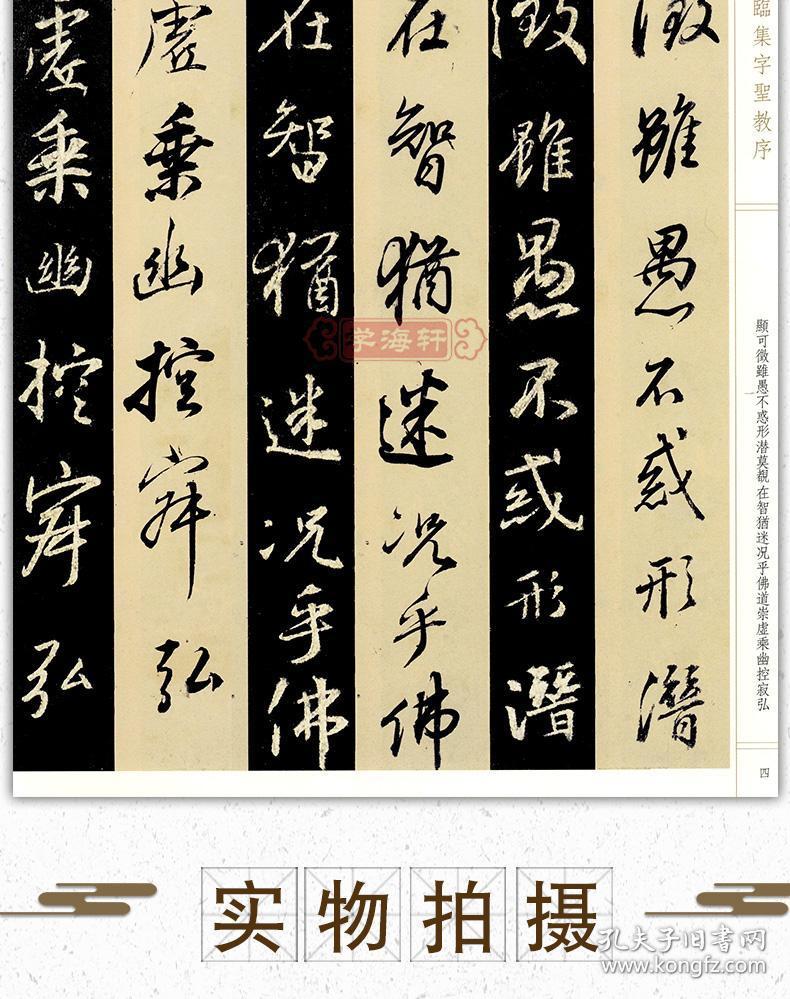 臨集字聖教序
顯可徵雖愚不惑形潜莫覩在智猶迷况乎佛道崇虛乘幽控寂弘
四
徵雖愚不惑形潛
徵雖愚不惑形潛
在智猶迷况乎佛
在智猶迷况乎佛
虛乘幽控寂弘
虛乘幽控寂弘
学海轩
实物拍摄
孔夫子旧书网
www.kongfz.com